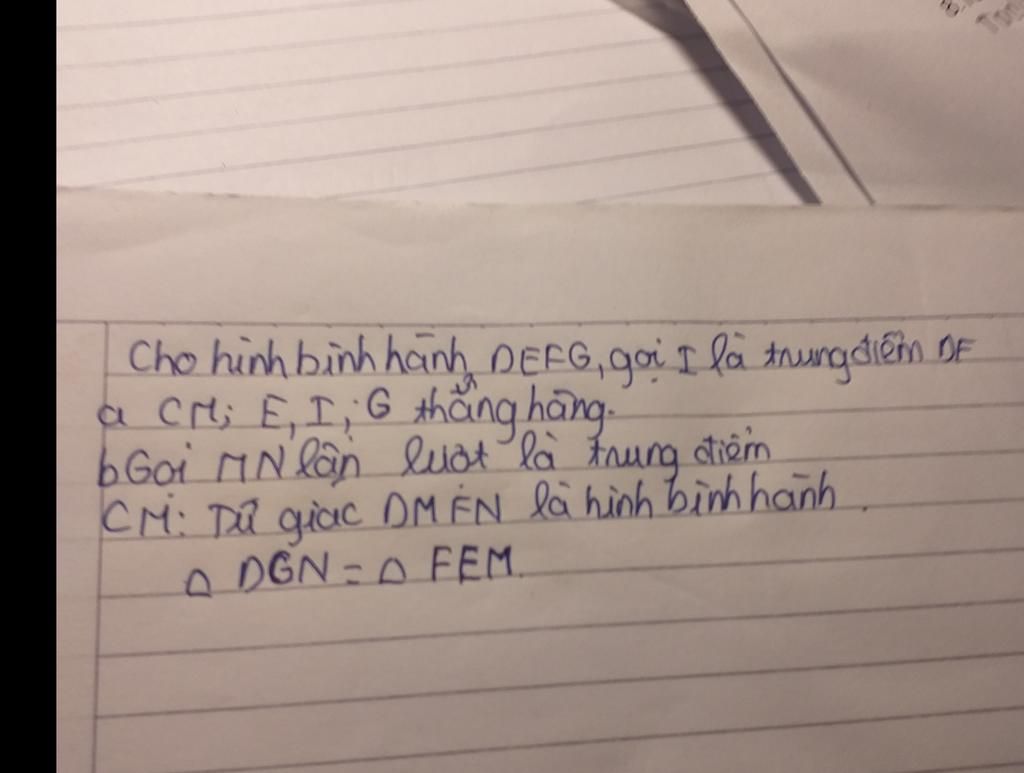 Cho hình bình hành DEFG, gọi I là trung điểm DF
a CM; E, I, G thẳng hàng.
b Gọi MN lần lượt là trung điểm
CM: Tứ giác DMFN là hình bình hành.
△ DGN = △ FEM.